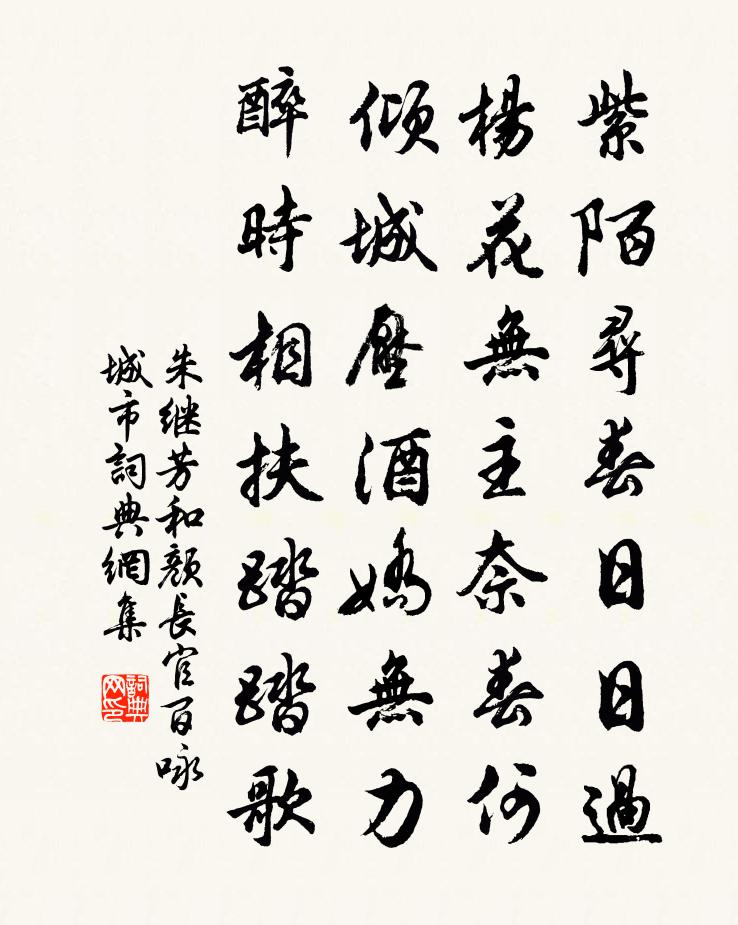 紫陌尋春日日過
楊花無主奈春何
傾城壓酒嬌無力
醉時相扶踏踏歌
朱继芳和顏長官百咏
城市詞典網集
詞典网印